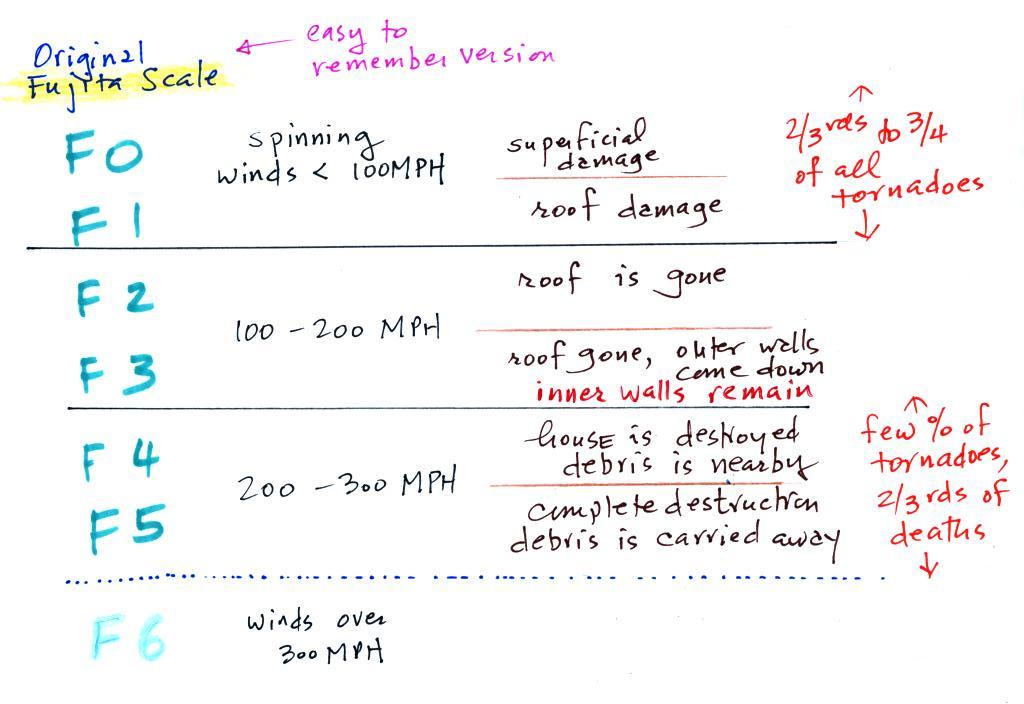 Original
Fujita Scale
easy to
remember version
F0
spinning
winds < 100MPH
superficial
damage
F1
roof damage
2/3rds to 3/4
of all
tornadoes
F2
roof is gone
100 - 200 MPH
F3
roof gone, outer walls
come down
inner walls remain
F4
house is destroyed
debris is nearby
200 - 300 MPH
F5
complete destruction
debris is carried away
few % of
tornadoes,
2/3 rds of
deaths
F6
winds over
300 MPH